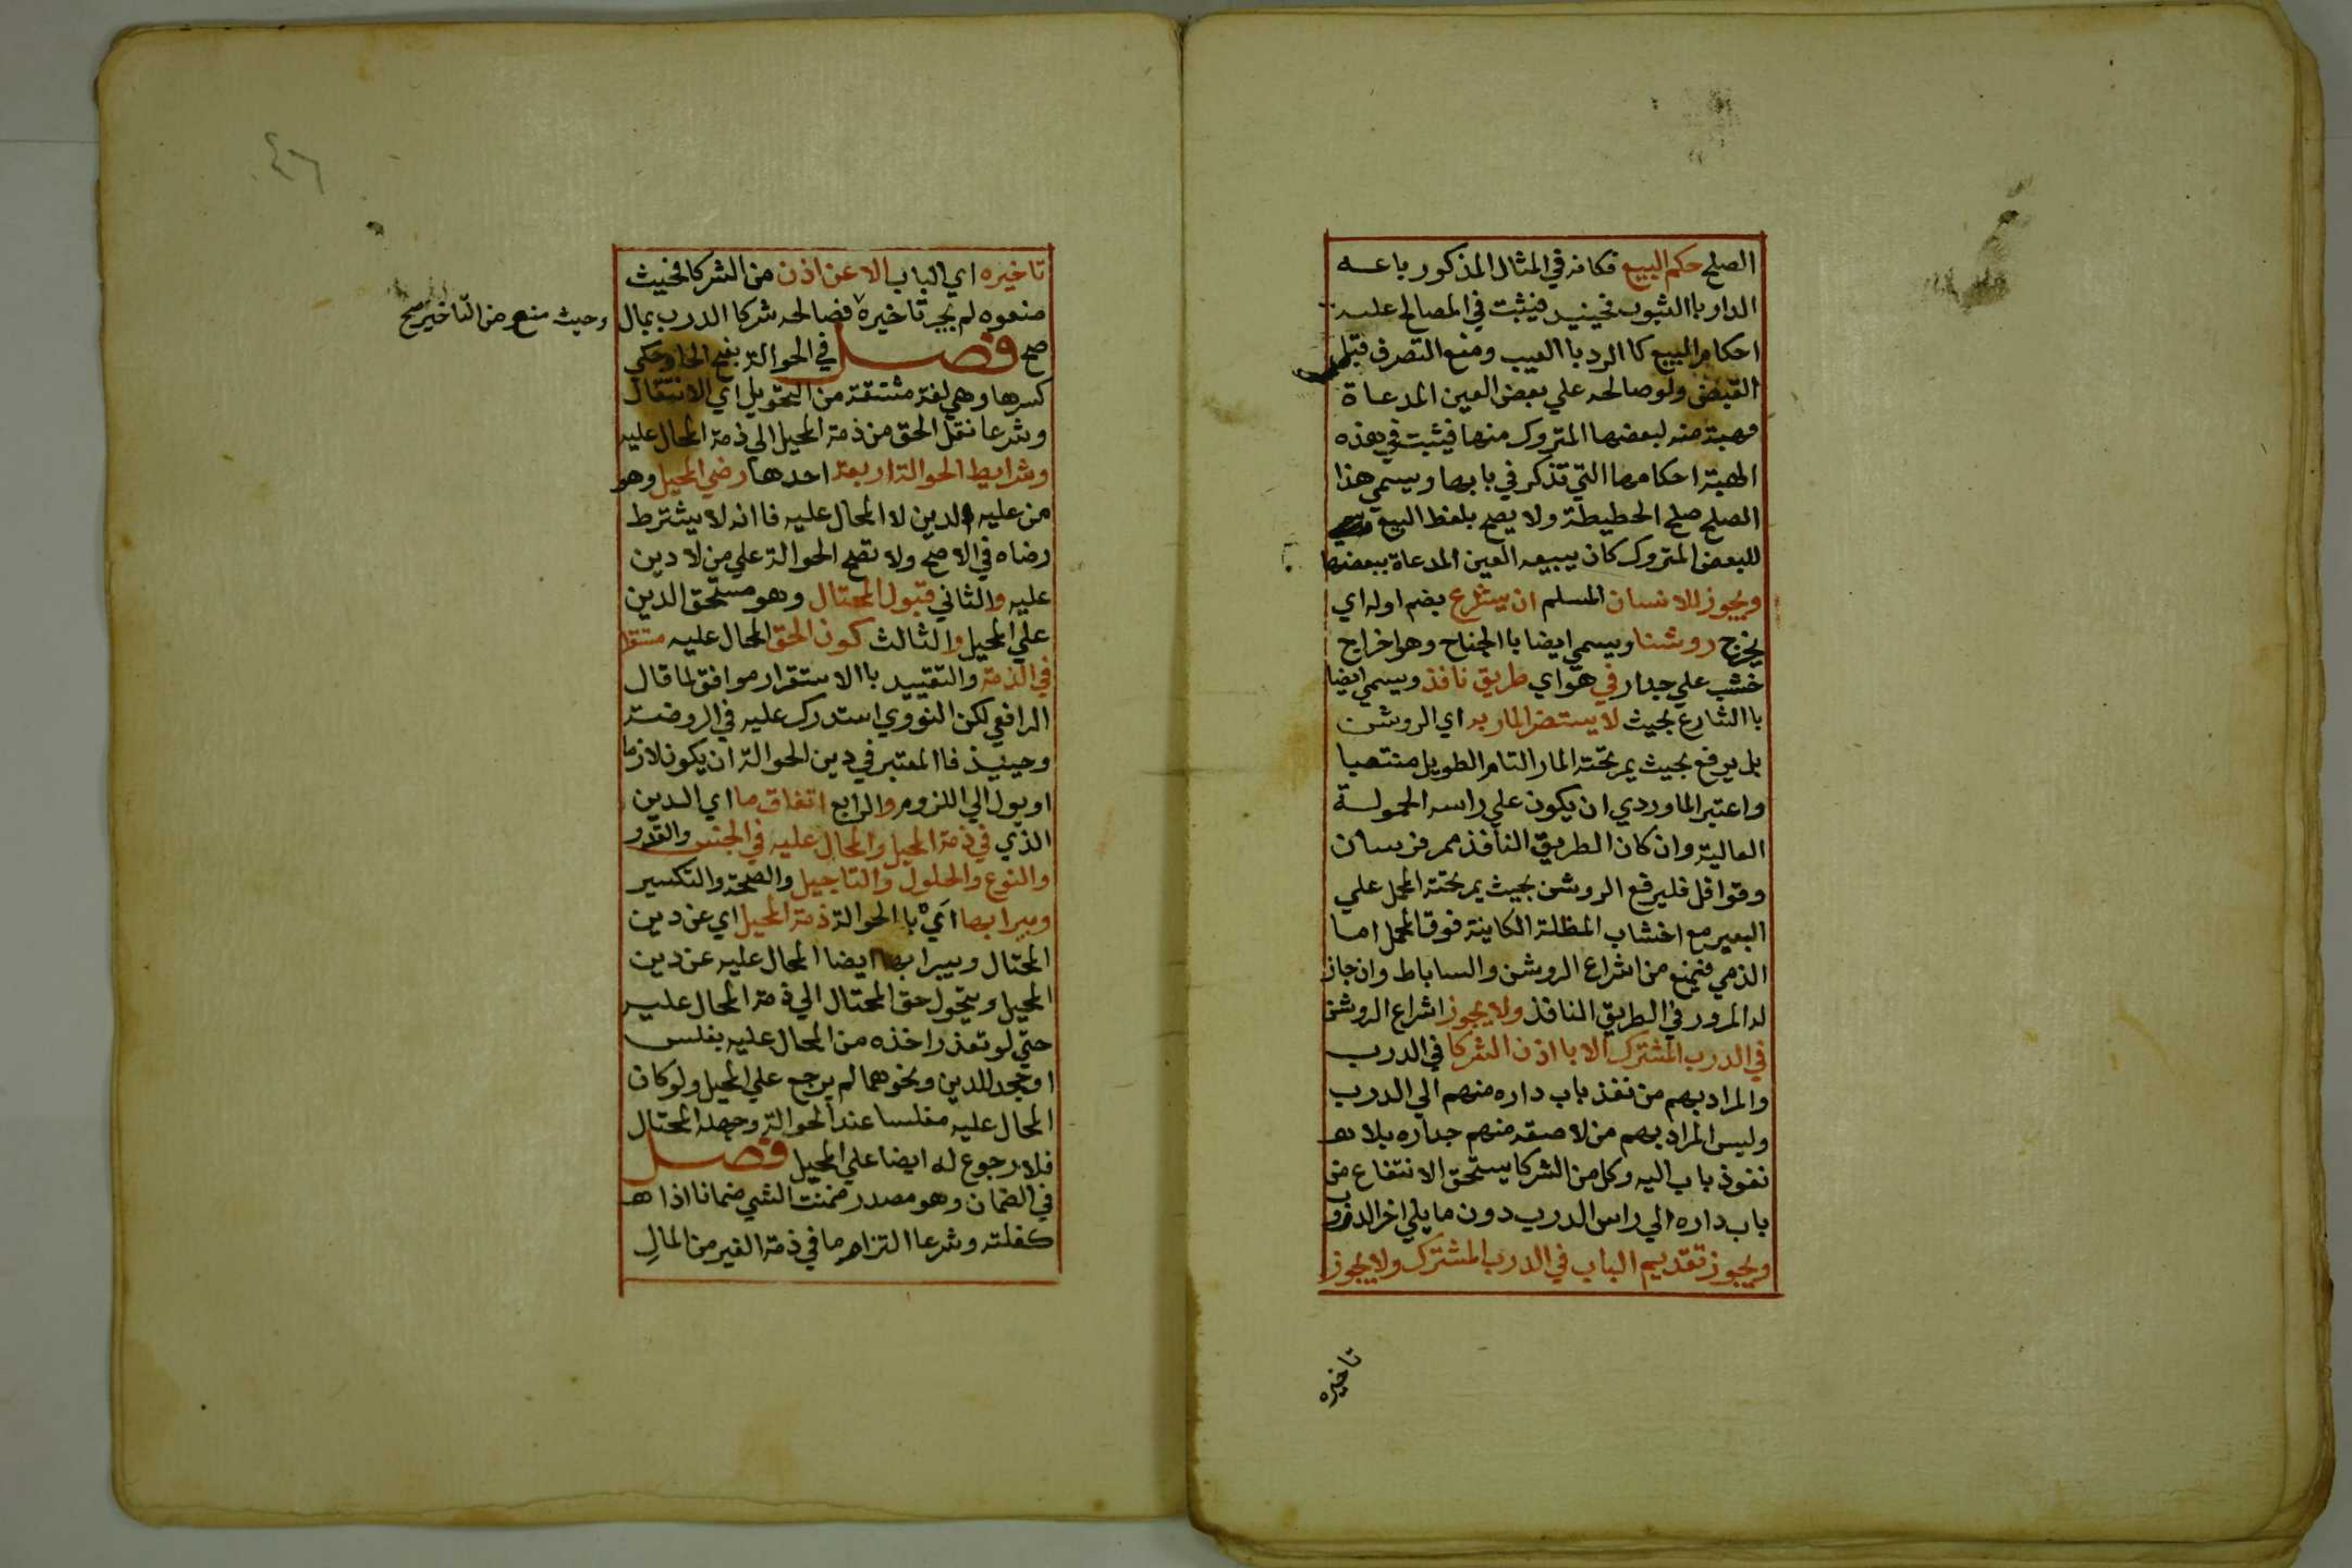 الصلح حكم البيع فكانه في المثال المذكور باعه
الدار باالثوب فحينيد فيثبت في المصالح عليه
احكام البيع كاالرد باالعيب ومنع التصرف قبل
القبض ولو صالحه علي بعض العين المدعاة
فهبة منه لبعضها المتروك منها فيثبت في هذه
الهبة احكامها التي تذكر في بابها ويسمي هذا
الصلح صلح الحطيطة ولا يصح بلفظ البيع
للبعض المتروك كان يبيعه العين المدعاة ببعضها
ويجوز للانسان المسلم ان يشرع بضم اوله اي
يخرج روشنا ويسمي ايضا باالجناح وهو اخراج
خشب علي جدار في هواي طريق نافذ ويسمي ايضا
باالشارع بحيث لا يستضر المار به اي الروشن
بل يرفع بحيث يمر تحته المار التام الطويل منتصبا
واعتبر الماوردي ان يكون علي راسه الحمولة
العالية وان كان الطريق النافذ ممر فرسان
وقوافل فليرفع الروشن بحيث يمر تحته المحمل علي
البعير مع اخشاب المظلة الكاينة فوق المحمل اما
الذمي فيمنع من اشراع الروشن والساباط وان جاز
له المرور في الطريق النافذ ولا يجوز اشراع الروشن
في الدرب المشترك الا بااذن الشركا في الدرب
والمراد بهم من نفذ باب داره منهم الي الدرب
وليس المراد بهم من لاصقه منهم جداره بلا
نفوذ باب اليه وكل من الشركا يستحق الانتفاع من
باب داره الي راس الدرب دون ما يلي اخر الدرب و
ويجوز تقديم الباب في الدرب المشترك ولا يجوز
تاخيره
تاخيره اي الباب الا عن اذن من الشركا فحيث
منعوه لم يجز تاخيره فصالحه شركا الدرب بمال
وحيث منع من التاخير صح
صح فصل في الحوالة بفتح الحا وحكي
كسرها وهي لغة مشتقة من التحويل اي الانتقال
وشرعا نقل الحق من ذمة المحيل الي ذمة المحال عليه
وشرايط الحوالة اربعة احدها رضي المحيل وهو
من عليه الدين لا المحال عليه فاانه لا يشترط
رضاه في الاصح ولا تصح الحوالة علي من لا دين
عليه والثاني قبول المحتال وهو مستحق الدين
علي المحيل والثالث كون الحق المحال عليه مستقرا
في الذمة والتقييد باالاستقرار موافق لما قال
الرافعي لكن النووي استدرك عليه في الروضة
وحينيذ فاالمعتبر في دين الحوالة ان يكون لازما
او يول الي اللزوم والرابع اتفاق ما اي الدين
الذي في ذمة المحيل والمحال عليه في الجنس والقدر
والنوع والحلول والتاجيل والصحة والتكسير
ويبرا بها اي باالحوالة ذمة المحيل اي عن دين
المحتال ويبرا بها ايضا المحال عليه عن دين
المحيل ويتحول حق المحتال الي ذمة المحال عليه
حتي لو تعذر اخذه من المحال عليه بفلس
او جحد للدين ونحوهما لم يرجع علي المحيل ولو كان
المحال عليه مفلسا عند الحوالة وجهله المحتال
فلا رجوع له ايضا علي المحيل فصل
في الضمان وهو مصدر ضمنت الشي ضمانا اذا
كفلته وشرعا التزام ما في ذمة الغير من المال